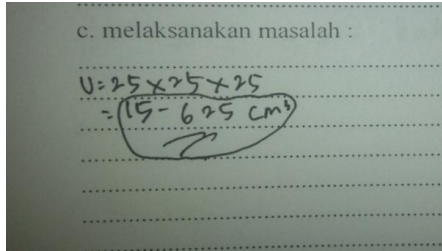 c. melaksanakan masalah :
V = 25 × 25 × 25
= 15 - 625 cm³